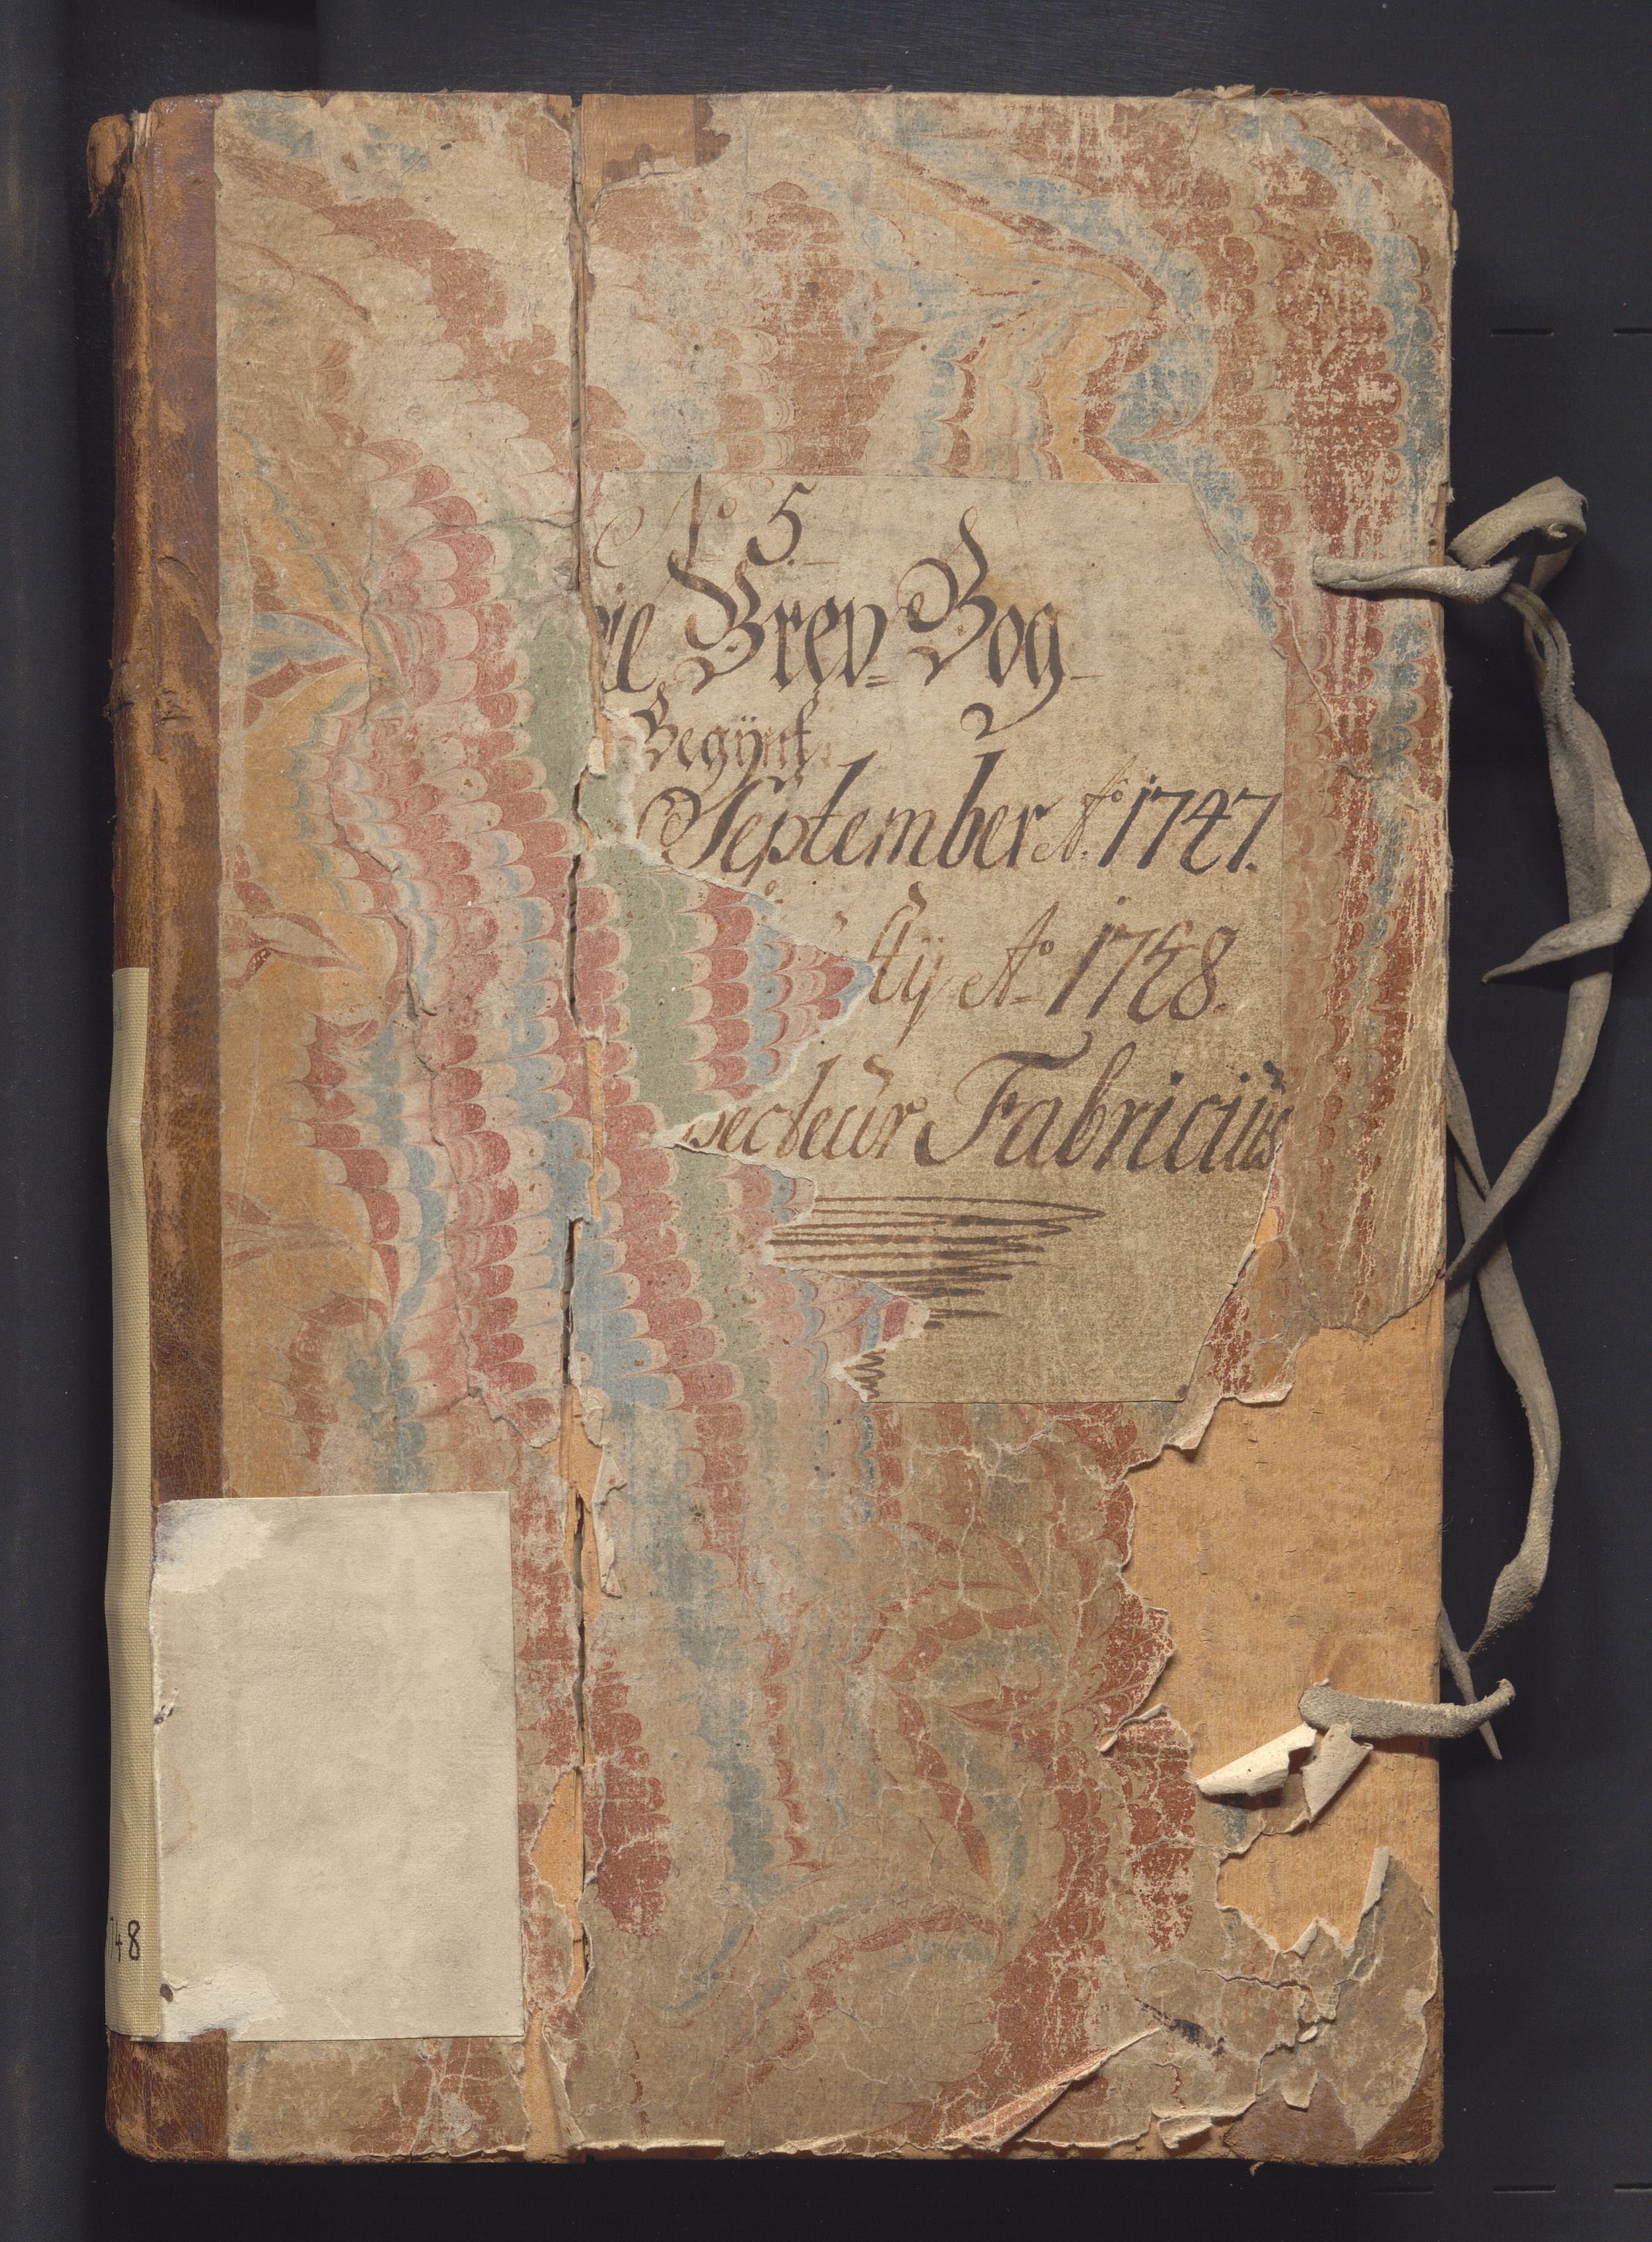 No 5.
Brev=Bog
Begÿnt
September Ao 1747.
Ao 1748.
ecteur Fabricius
48